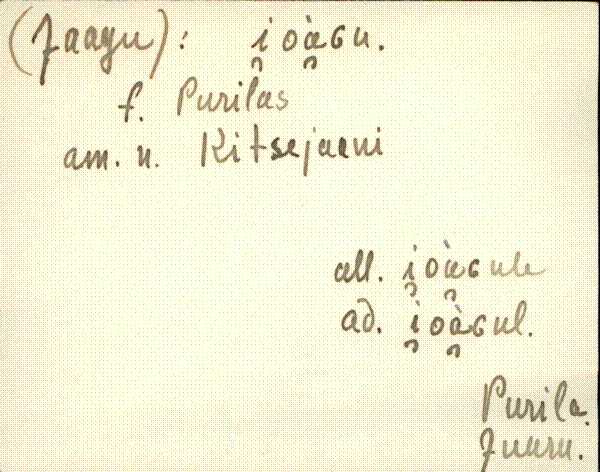 (Jaagu): i̯oà̯ɢu.
t. Purilas
am. n. Kitsejaani
all. i̯oà̯ɢule
ad. i̯oà̯ɢul.
Purila.
Juuru.